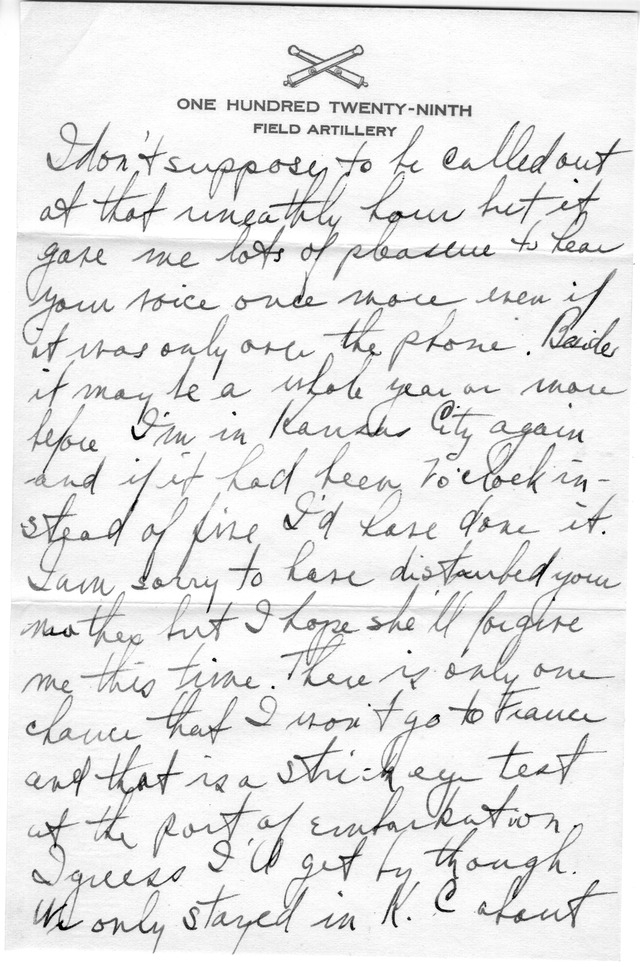 ONE HUNDRED TWENTY-NINTH
FIELD ARTILLERY
I don't suppose to be called out
at that uneathly hour but it
gave me lots of pleasure to hear
your voice once more even if
it was only over the phone. Besides
it may be a whole year or more
before I'm in Kansas City again
and if it had been o'clock in-
stead of five I'd have done it.
I am sorry to have disturbed your
mother but I hope she'll forgive
me this time. There is only one
chance that I won't go to France
and that is a eye test
at the port of embarkation.
I guess I'll get by though.
We only stayed in K.C about